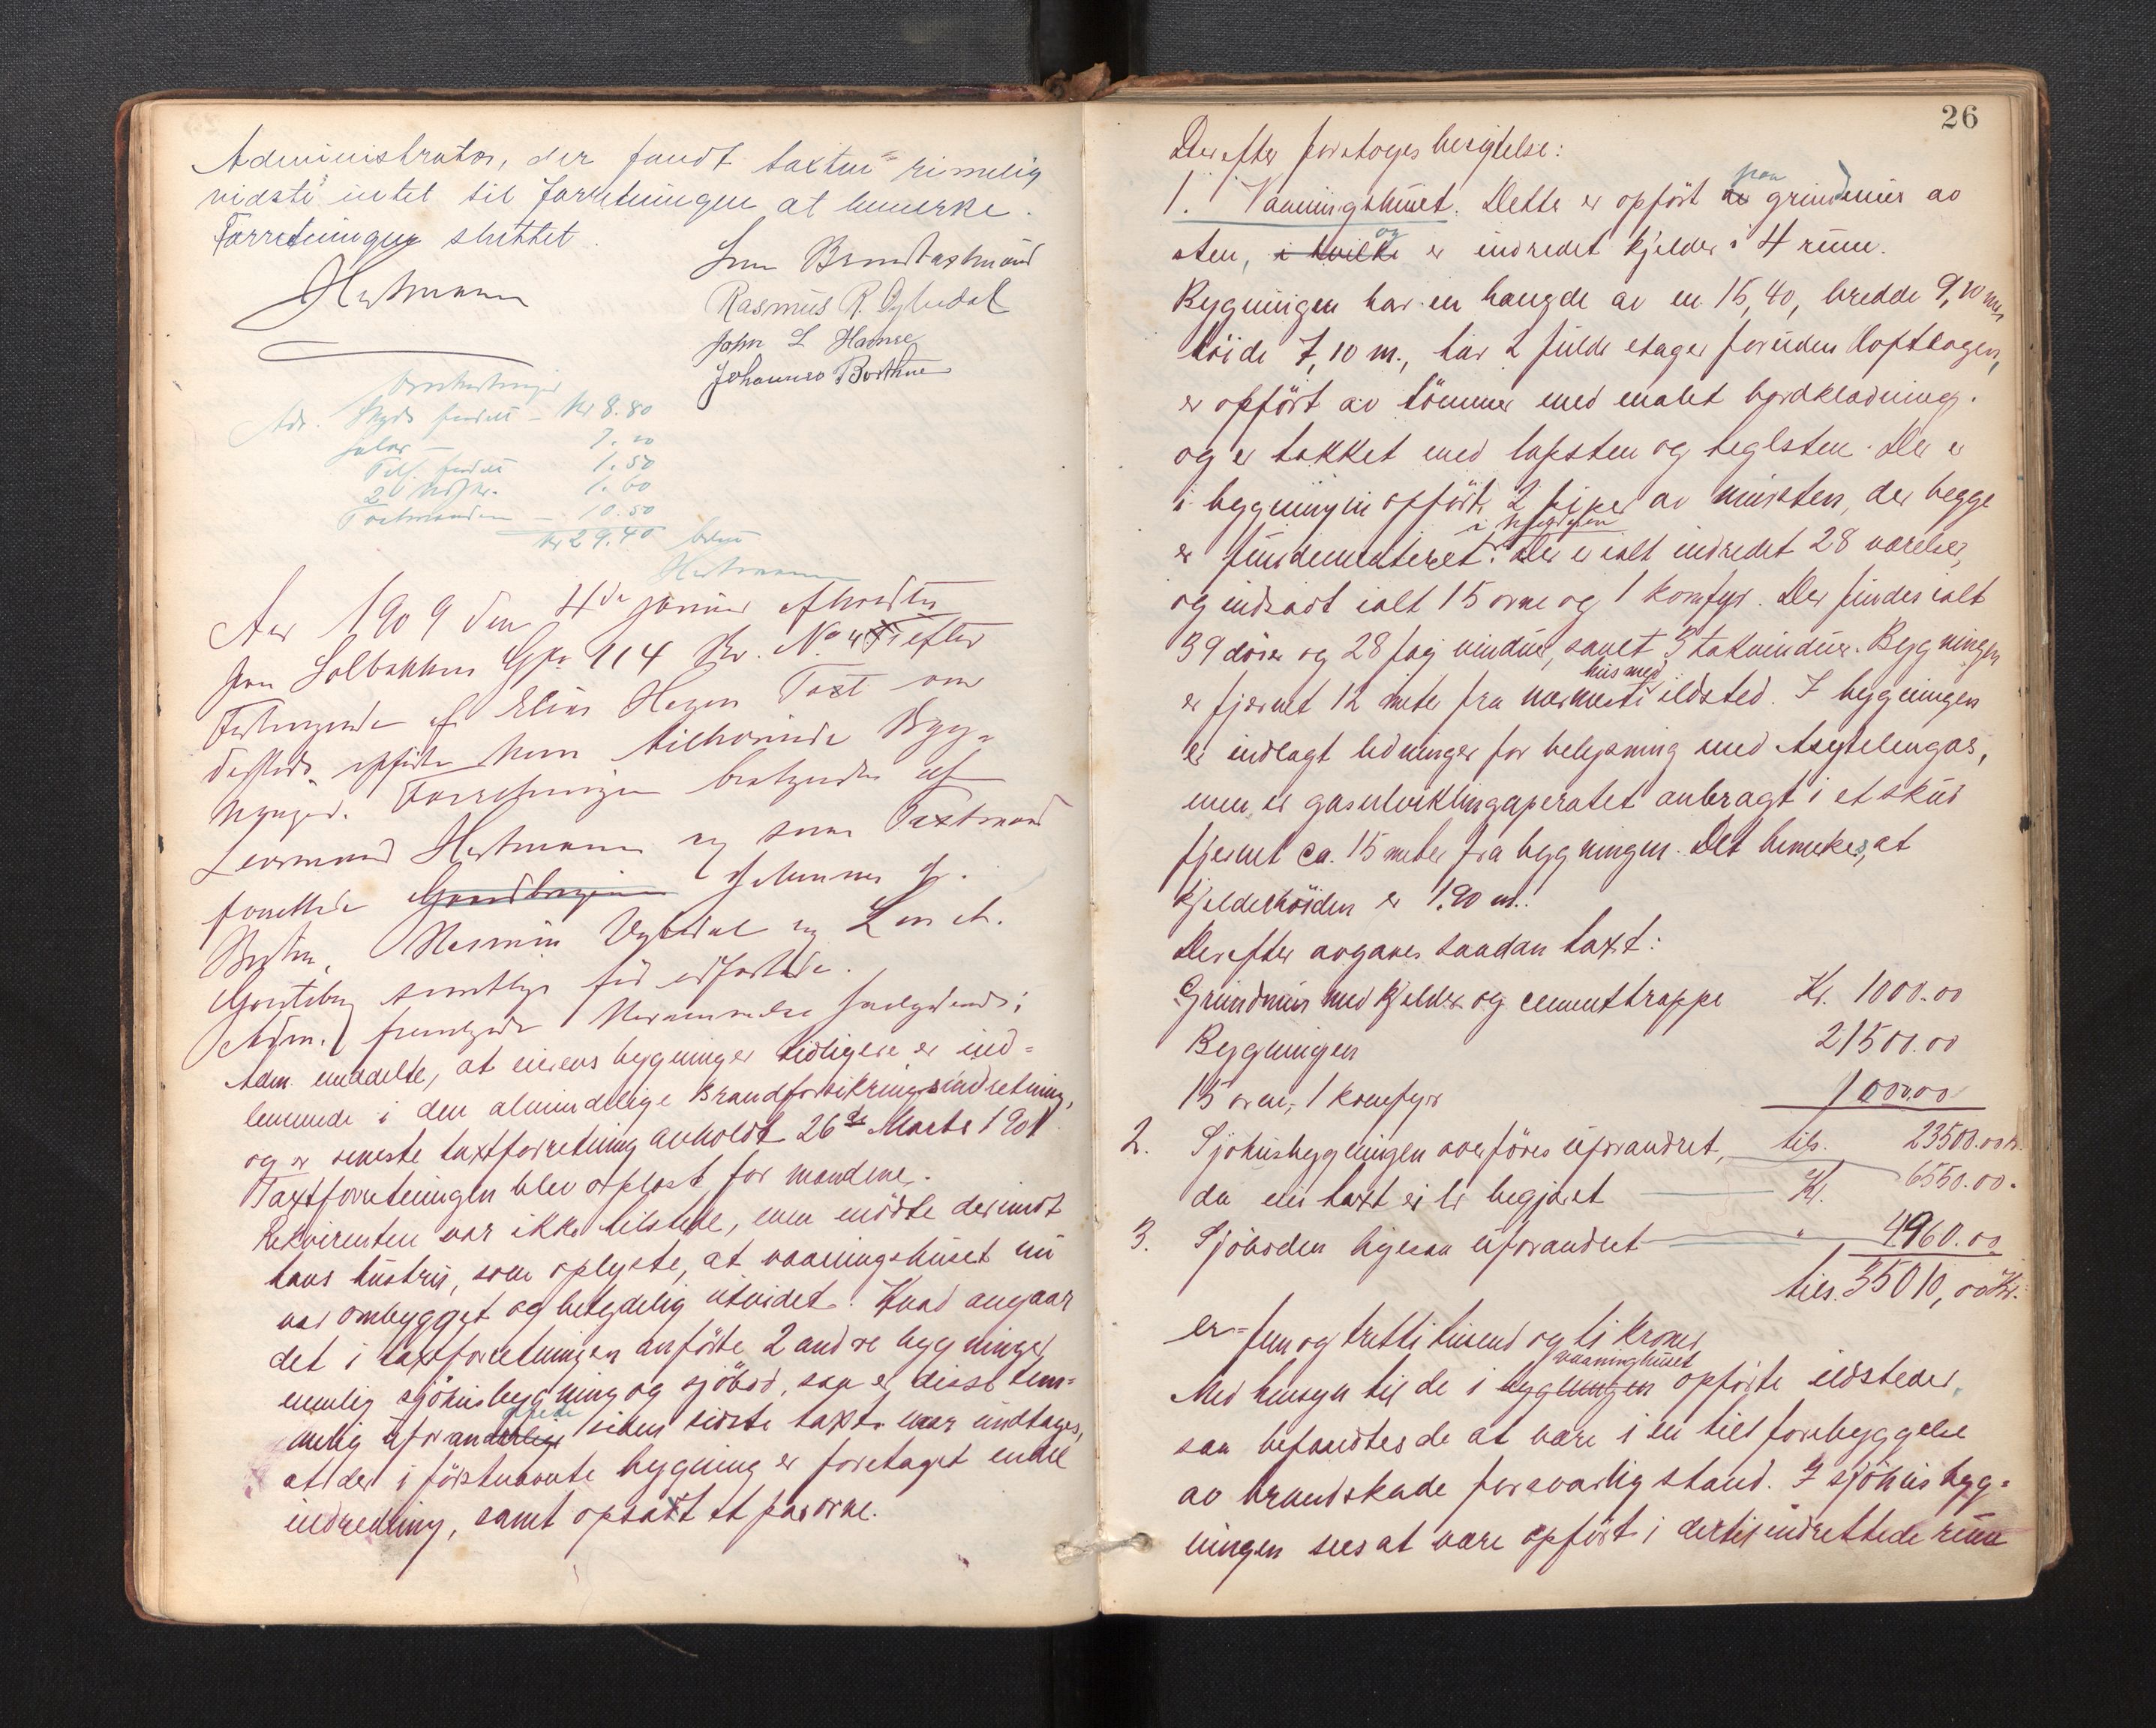 Administrator, der fandt taxten rimelig
vidste intet til forretningen at bemerke.
Forretningen sluttet.
Hartmann
Som Brandtaxtmænd
Rasmus R. Dybedal
John L Hamre
Johannes Borthne
Omkostninger
Adr. Skyds
Kr 8.80
Salær
7.00
Tilf.
1.50
2
1.60
Taxtmændene – 10.50
Kr 29.40
Hartmann
Aar 1909 den 4de juni afholdtes
paa Solbakken Gr. 114 Br. No 4 efter
Forlangende af Elias Hagen Taxt over
de paa opførte ham tilhørende Byg-
ninger. Forretningen betjentes af
Lensmand Hartmann og som Taxtmænd
fremstod Johannes
Rasmus Dybedal og L
samtlige før edfæstede.
Adm. fremlagde Nævnelse saalydende:
Adm. meddelte, at eierens bygninger tidligere er ind-
lemmede i den almindelige Brandforsikringsindretning,
og er seneste taxtforretning avholdt 26de Marts 1901
Taxtforretningen blev oplæst for mændene.
Rekvirenten var ikke tilstede, men mödte derimot
hans hustru, som oplyste, at vaaningshuset nu
var ombygget og betydelig utvidet. Hvad angaar
det i taxtforretningen anförte 2 andre bygninger,
nemlig sjöhusbygning og sjöbod, saa er disse tem-
melig uforandrede siden sidste taxt, naar undtages,
at der i förstnævnte bygning er foretaget endel
indredning, samt opsatt et par ovne.
26
Derefter foretoges besigtelse:
1. Vaaningshuset. Dette er opfört paa grundmur av
sten, i hvilke og er indredet kjelder i 4 rum.
Bygningen har en længde av en 15,40, bredde 9,20 m,
höide 7,10 m., har 2 fulde etager foruden loftetagen,
er opfört av tömmer med malet bordklædning.
og er tækket med tapsten og teglsten. Der er
i bygningen opfört 2 piper av mursten, der begge
er fundementeret i kjelderen. Der er ialt indredet 28 værelser,
og indsadt ialt 15 ovne og 1 komfyr. Der findes ialt
39 dörer og 28 fag vinduer, samt 3 takvinduer. Bygningen
er fjernet 12 meter fra nærmeste hus med ildsted. I bygningen
er indlagt ledninger for belysning med Asetylengas,
men er gasutviklingaperatet anbragt i et skur
fjernet ca. 15 meter fra bygningen. Det bemerkes, at
kjelderhöiden er 1.90 m.
Derefter avgaves saadan taxt:
Grundmur med kjelder og cementtrappe Kr. 1000.00
Bygningen 21500.00
15 ovne, 1 komfyr 1000.00
tils. 23500.00 kr.
2. Sjöhusbygningen overföres uforandret,
da ein taxt ei er begjæret Kr. 6550.00.
3. Sjöboden ligesaa uforandret " 4960.00
tils. 35010,00 Kr.
er= fem og tretti tusend og ti kroner
Med hensyn til de i bygningen vaaninghuset opförte ildsteder,
saa befandtes de at være i en til forebyggelse
av brandskade forsvarlig stand. I sjöhusbyg-
ningen sees at være opfört i dertil indrettede rum